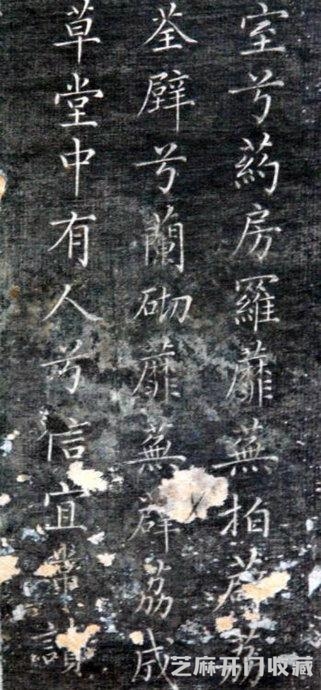 室兮葯房羅蘼蕪拍薜荔
荃壁兮蘭砌蘼蕪薜荔成
草堂中有人兮信宜常讀
芝麻开门收藏